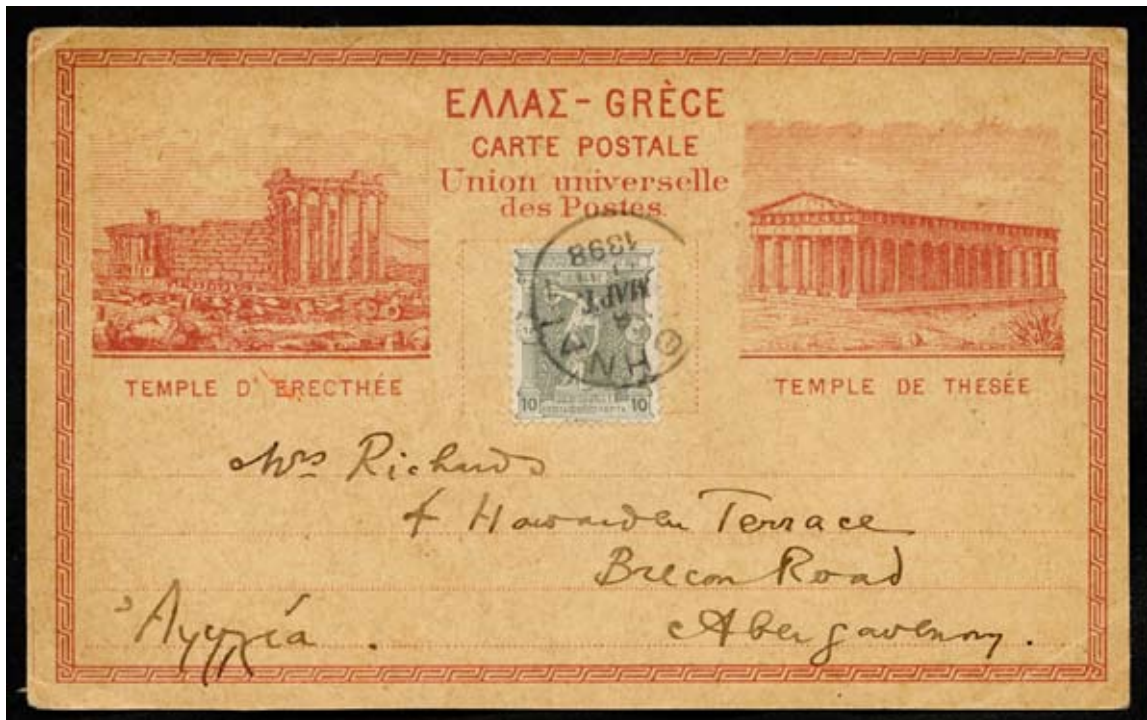 ΕΛΛΑΣ - GRÈCE
CARTE POSTALE
Union universelle
des Postes.
1898
ΜΑΡΤ.
ΑΘΗΝΑΙ
10 10
TEMPLE D' ERECTHÉE
TEMPLE DE THESÉE
Mrs Richards
4 Hawarden Terrace
Brecon Road
Abergavenny.
Ἀγγλία.